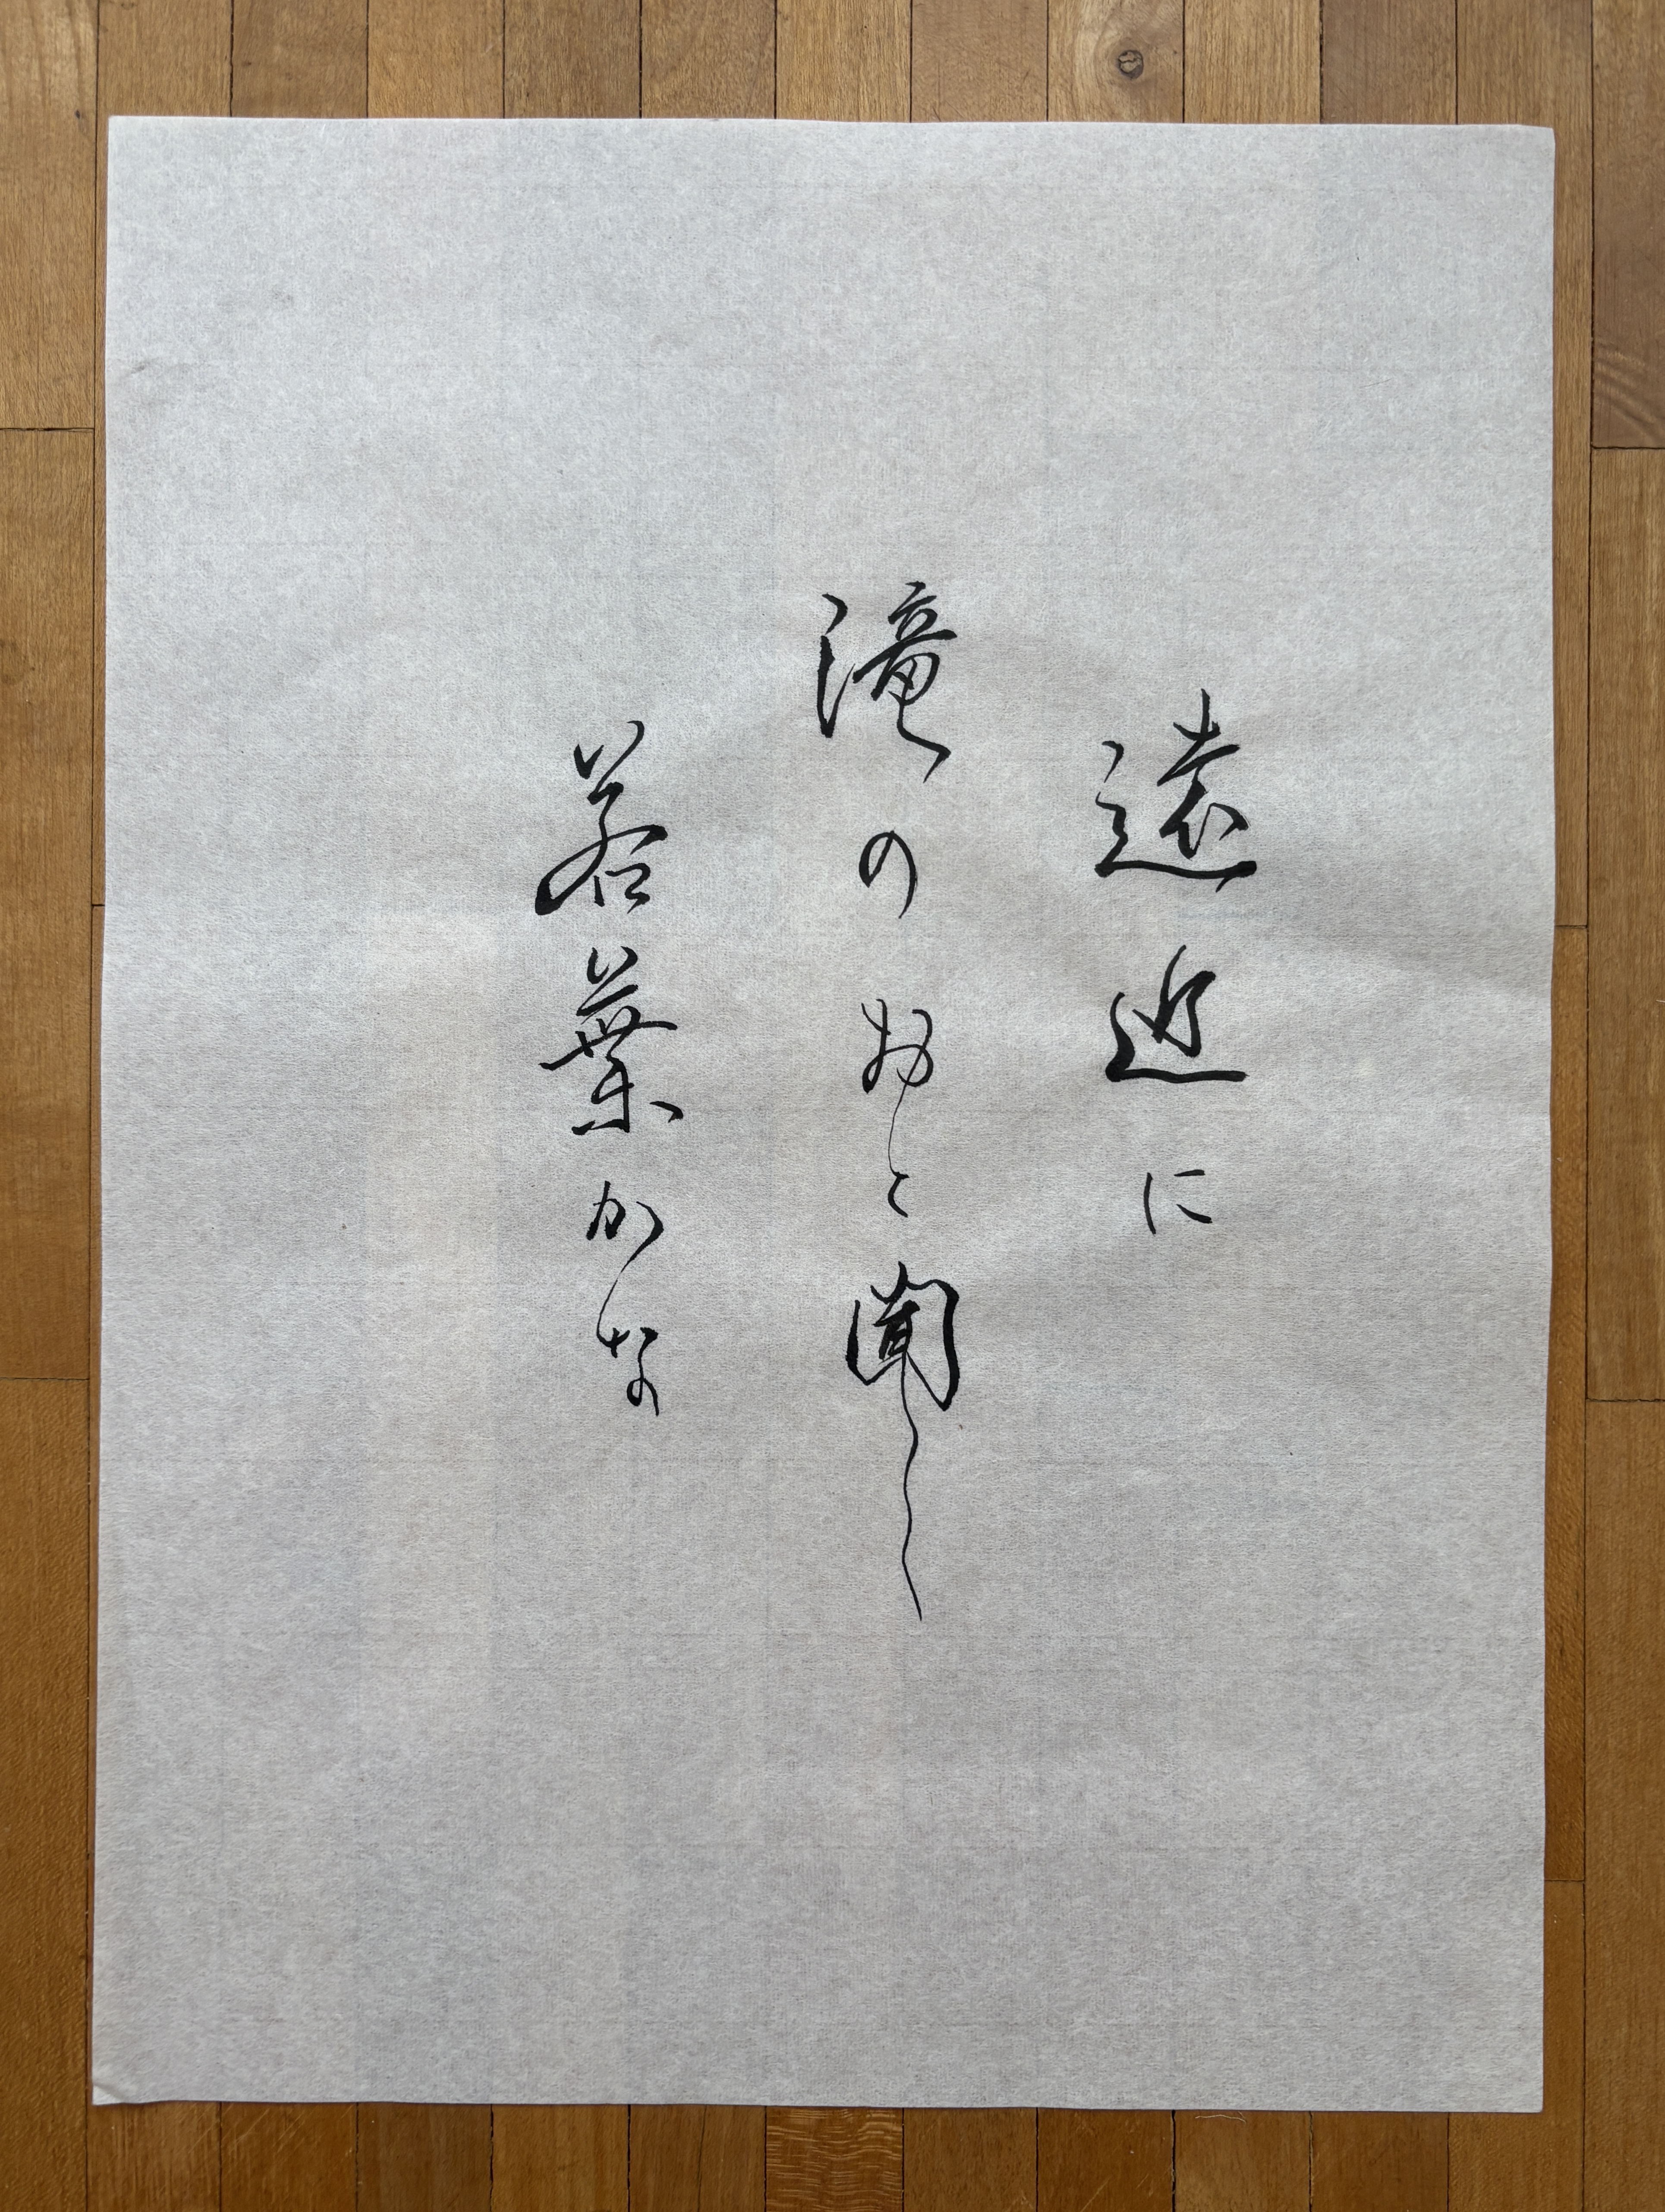 遠近に
滝のおと聞く
若葉かな